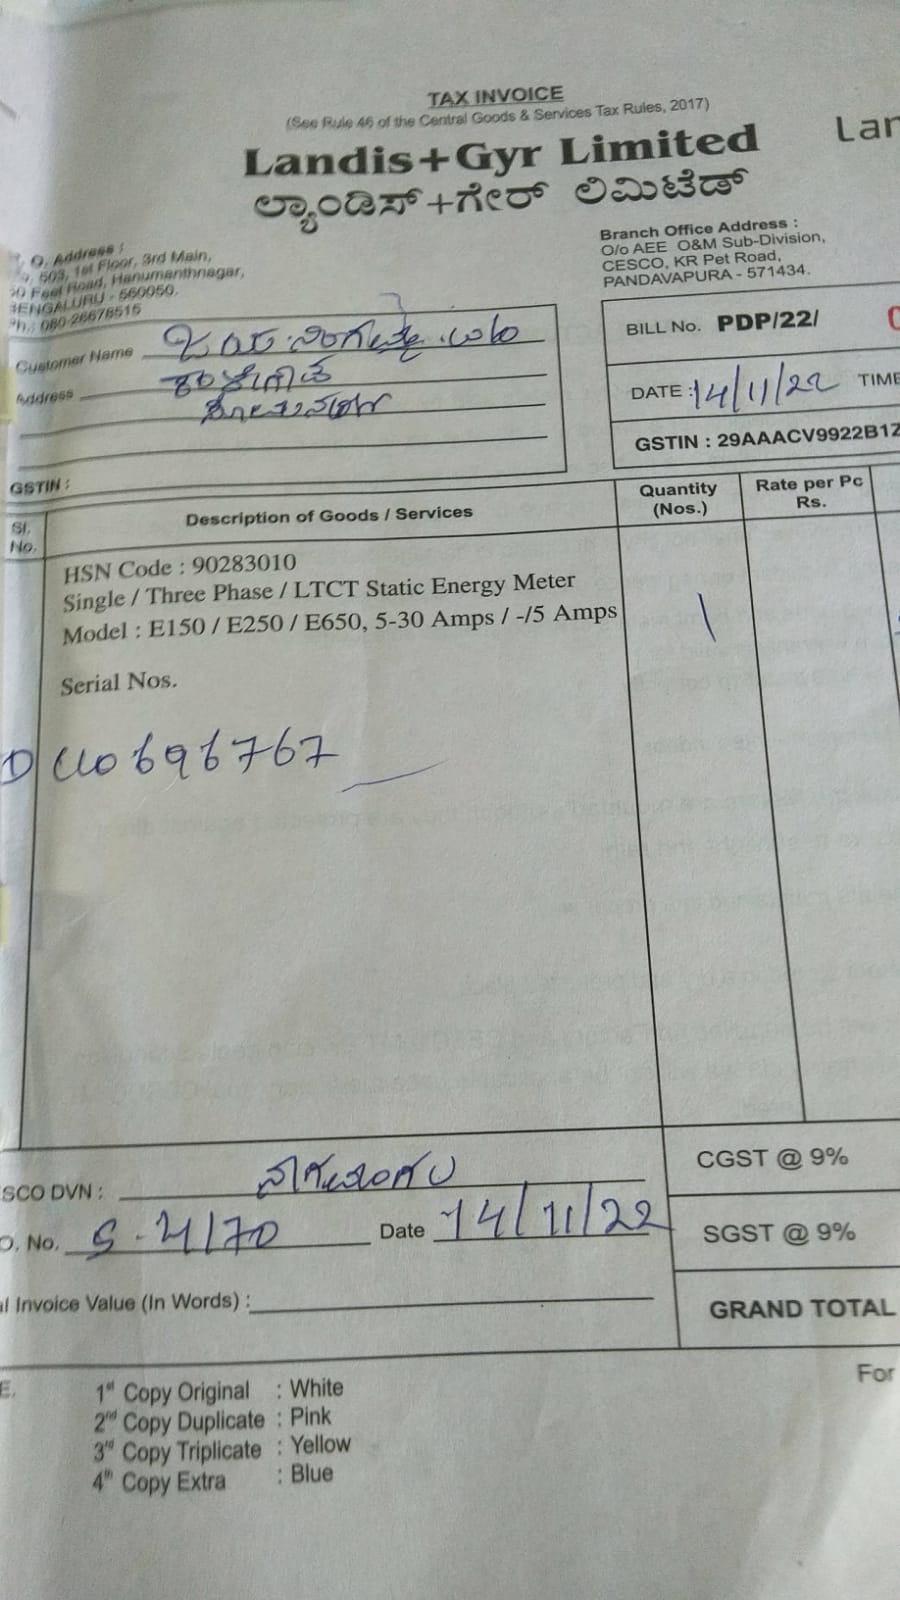 TAX INVOICE
(See Rule 46 of the Central Goods & Services Tax Rules, 2017)
Landis+Gyr Limited
ಲ್ಯಾಂಡಿಸ್+ಗೇರ್ ಲಿಮಿಟೆಡ್
Lan
O. Address :
503, 1st Floor, 3rd Main,
Feet Road, Hanumanthnagar,
BENGALURU - 560050.
Ph.: 080-26678515
Branch Office Address :
O/o AEE O&M Sub-Division,
CESCO, KR Pet Road,
PANDAVAPURA - 571434.
Customer Name
Address
GSTIN :
BILL No. PDP/22/
DATE : 14/11/22 TIME
GSTIN : 29AAACV9922B1Z
Sl. No.
Description of Goods / Services
Quantity (Nos.)
Rate per Pc Rs.
HSN Code : 90283010
Single / Three Phase / LTCT Static Energy Meter
Model : E150 / E250 / E650, 5-30 Amps / -/5 Amps
1
Serial Nos.
696767
SCO DVN :
O. No. Date 14/11/22
l Invoice Value (In Words) :
CGST @ 9%
SGST @ 9%
GRAND TOTAL
For
E.
1st Copy Original : White
2nd Copy Duplicate : Pink
3rd Copy Triplicate : Yellow
4th Copy Extra : Blue